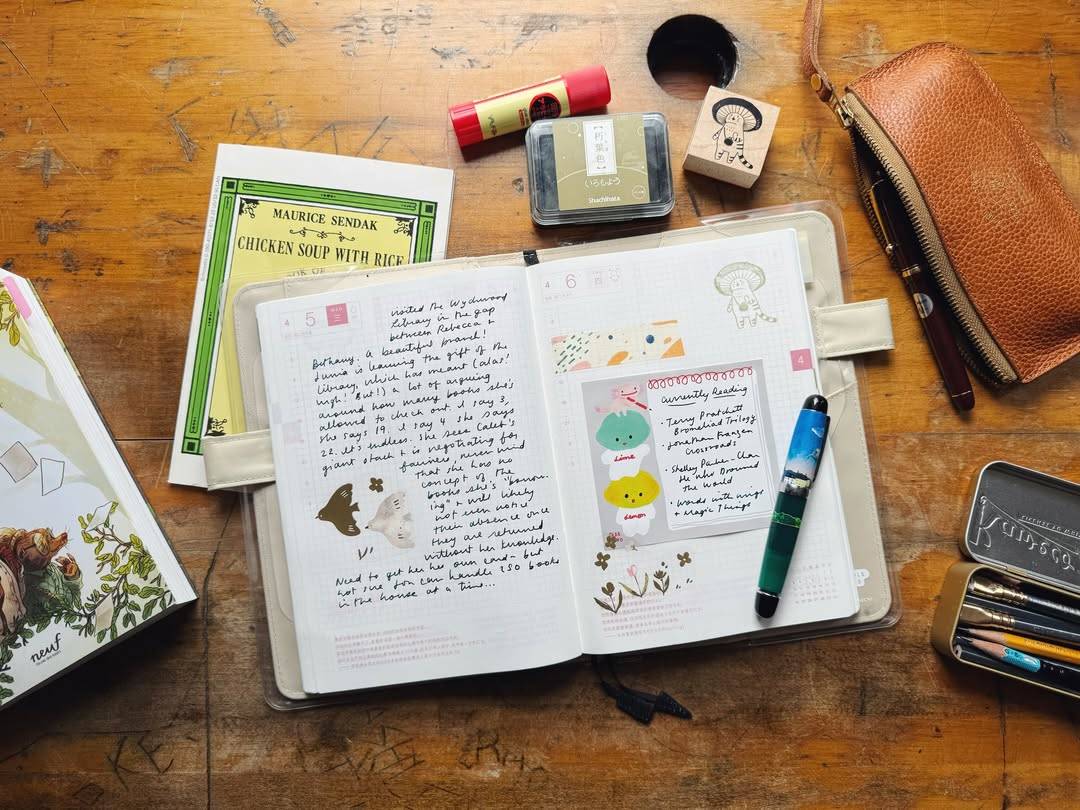 MAURICE SENDAK
CHICKEN SOUP WITH RICE
朽葉色
いろもよう
Shachihata
4 5
visited the Wychwood
Library in the gap
between Rebecca +
Bethany. A beautiful branch!
Junia is learning the gift of the
library, which has meant (alas!
ugh! But!) a lot of arguing
around how many books she's
allowed to check out. I say 3,
she says 19. I say 4 she says
22. It's endless. She sees Caleb's
giant stack + is negotiating for
fairness, never mind
that she has no
concept of the
books she's "borrow-
ing" + will likely
not even notice
their absence once
they are returned
without her knowledge.
Need to get her her own card - but
not sure Jon can handle 250 books
in the house at a time...
4 6
4
Currently Reading
• Terry Pratchett
Bromeliad Trilogy
• Jonathan Franzen
Crossroads
• Shelley Parker-Chan
He Who Drowned
the World
• Words with wings
+ Magic Things
Lime
Lemon
neuf